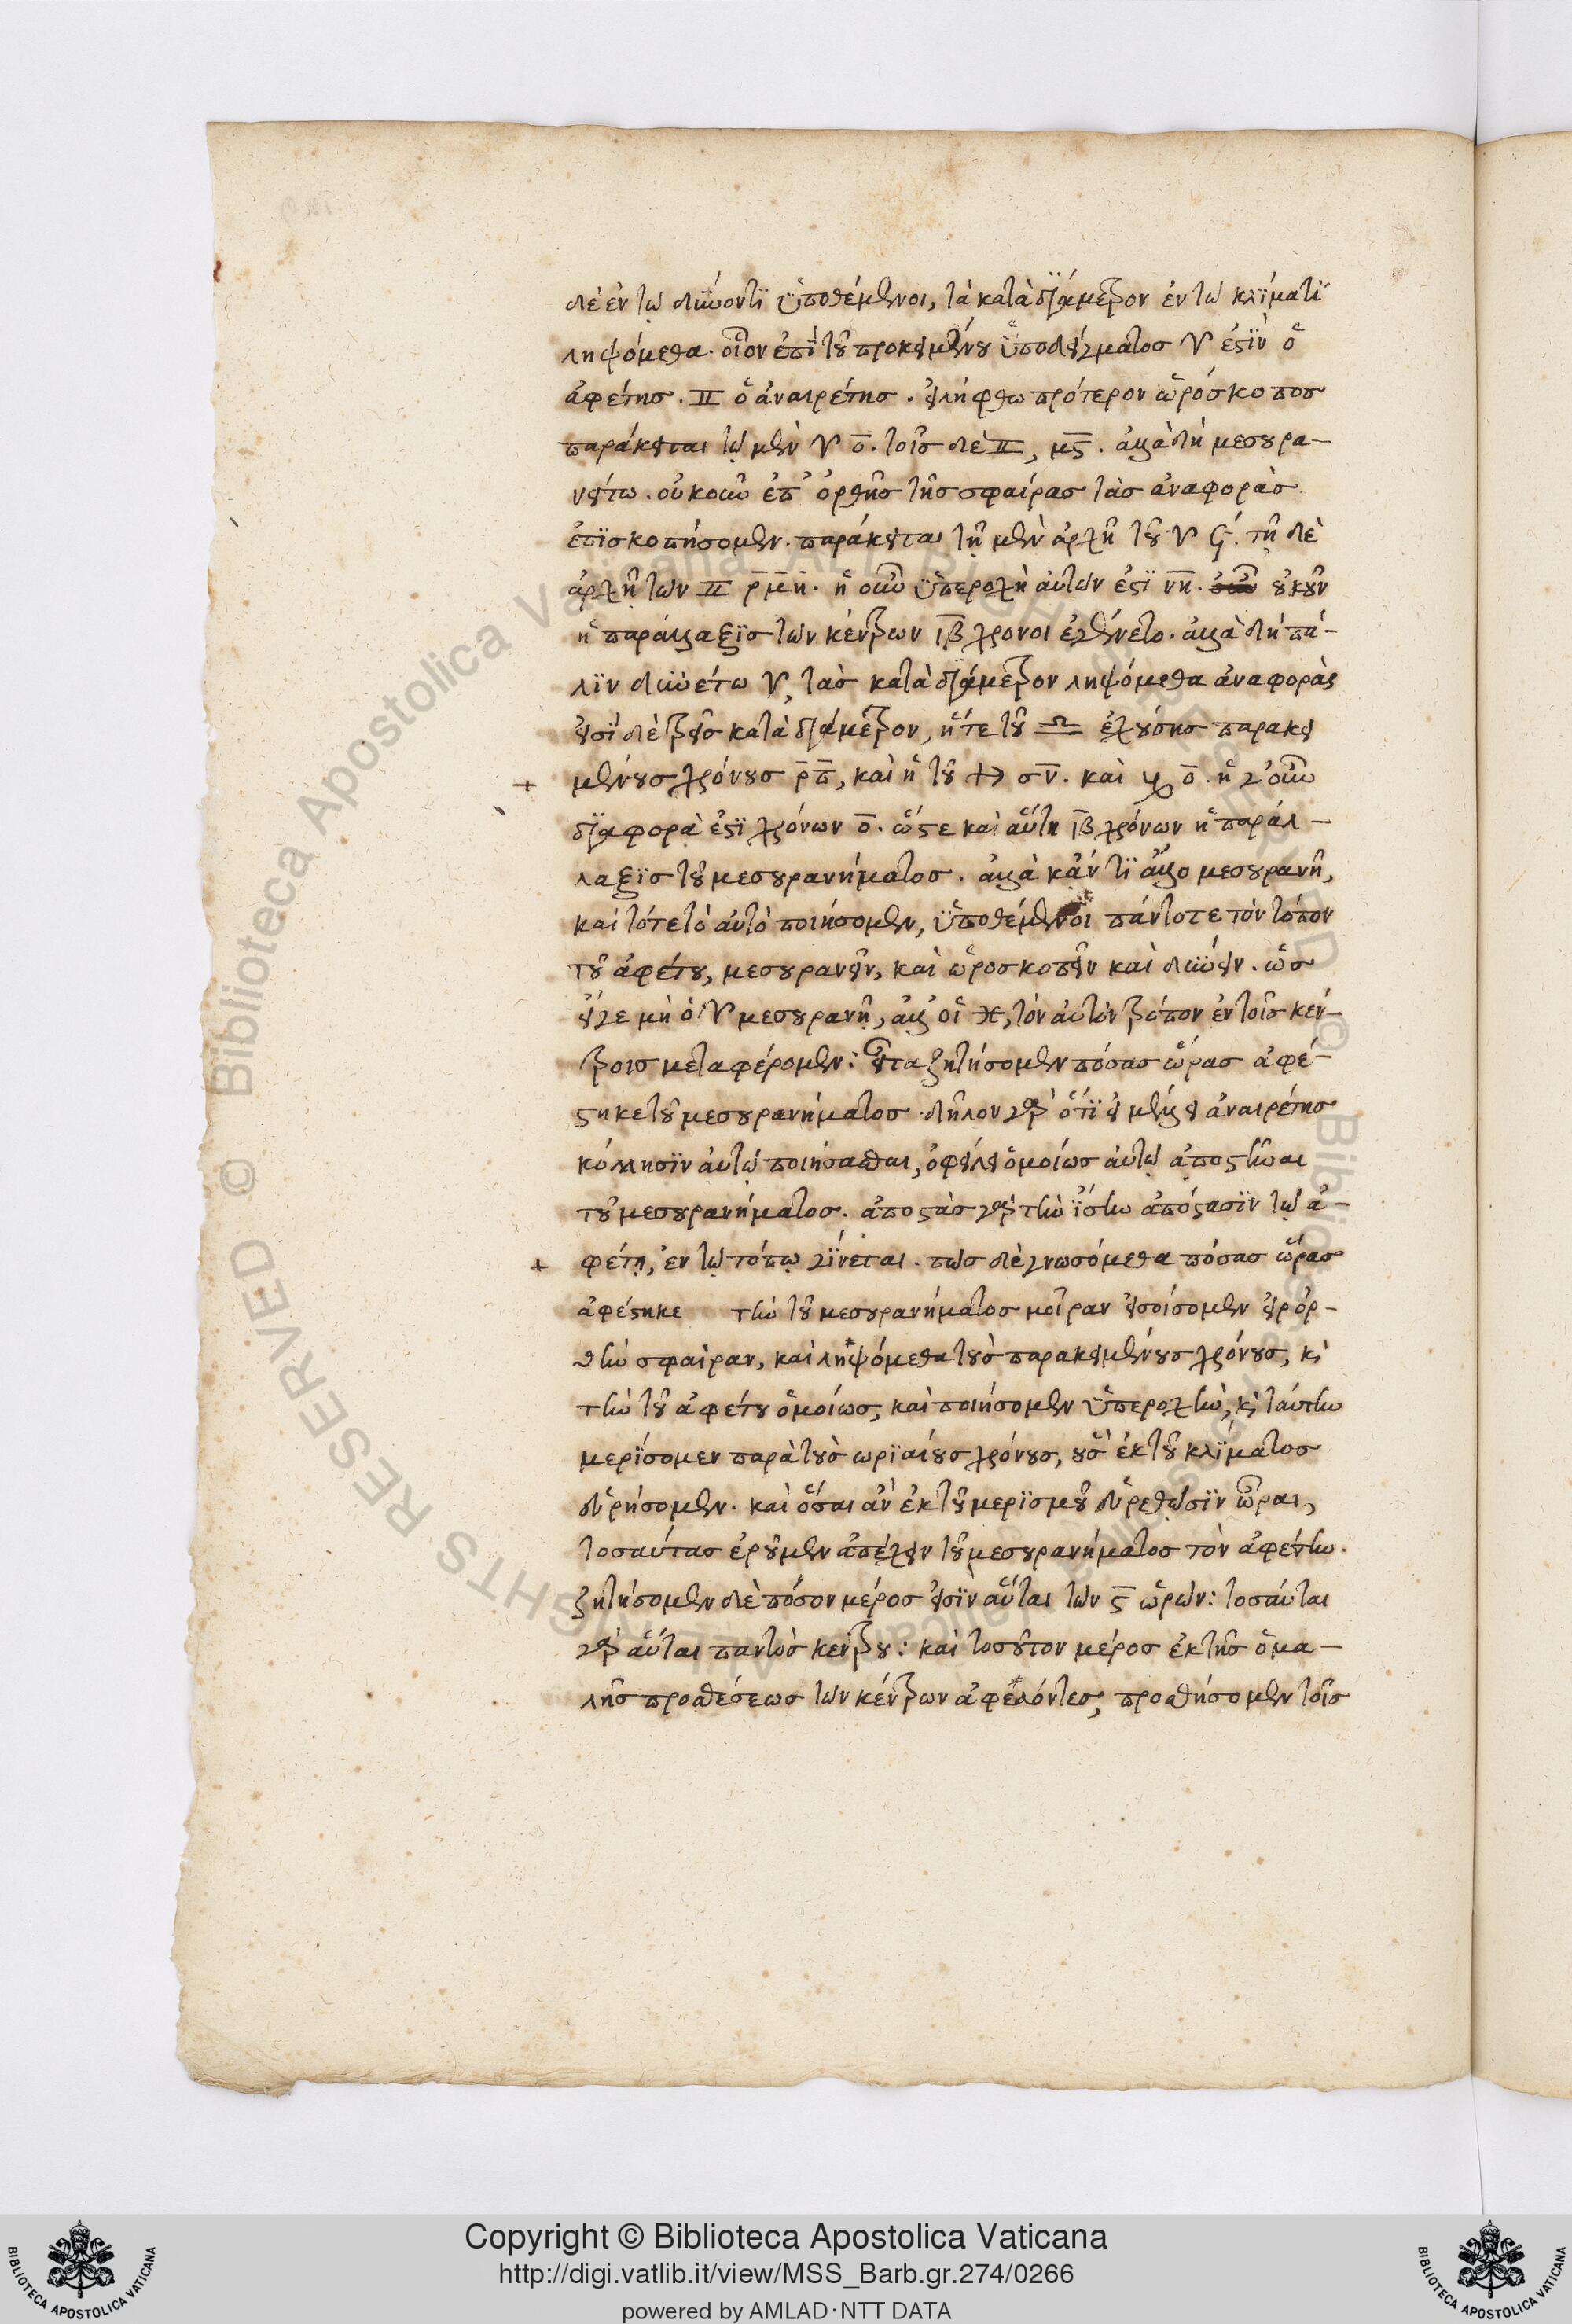 δὲ ἐν τῷ δύνοντι ὑποθέμενοι, τὰ κατὰ διάμετρον ἐν τῷ κλίματι
ληψόμεθα. οἷον ἐπὶ τοῦ προκειμένου ὑποδείγματος ♈ ἐστὶν ὁ
ἀφέτης. ♊ ὁ ἀναιρέτης. εἰλήφθω πρότερον ὡρόσκοπος
παράκειται τῷ μὲν ♈ ο̅. τοῖς δὲ ♊, μς̅. ἀλλὰ δὴ μεσουρα-
νείτω. οὐκοῦν ἐπ' ὀρθῆς τῆς σφαίρας τὰς ἀναφορὰς
ἐπισκοπήσομεν. παράκειται τῇ μὲν ἀρχῇ τοῦ ♈ ϟ. τῇ δὲ
ἀρχῇ τῶν ♊ ρ̅μ̅η̅. ἡ οὖν ὑπεροχὴ αὐτῶν ἐστὶ ν̅η̅. οὐκοῦν
ἡ παράλλαξις τῶν κέντρων ι̅β̅ χρόνοι ἐγένετο. ἀλλὰ δὴ πά-
λιν δυνέτω ♈, τὰς κατὰ διάμετρον ληψόμεθα ἀναφορὰς
εἰσὶ δὲ τρεῖς κατὰ διάμετρον, ἥτε τοῦ ♎ ἐχούσης παρακει
μένους χρόνους ρ̅π̅, καὶ ἡ τοῦ ♐ σν̅. καὶ ο̅. ἡ γ' οὖν
διαφορὰ ἐστὶ χρόνων ο̅. ὥστε καὶ αὕτη ι̅β̅ χρόνων ἡ παράλ-
λαξις τοῦ μεσουρανήματος. ἀλλὰ κἄν τι ἄλλο μεσουρανῇ,
καὶ τότε τὸ αὐτὸ ποιήσομεν, ὑποθέμενοι πάντοτε τὸν τόπον
τοῦ ἀφέτου, μεσουρανεῖν, καὶ ὡροσκοπεῖν καὶ δύνειν. ὡς
εἴγε μὴ ὁ ♈ μεσουρανῇ, ἀλλ' οἱ ♓, τὸν αὐτὸν τρόπον ἐν τοῖς κέν-
τροις μεταφέρομεν: εἶτα ζητήσομεν πόσας ὥρας ἀφέ-
στηκε τοῦ μεσουρανήματος. δῆλον γὰρ ὅτι εἰ μέλλει ἀναιρέτης
κόλλησιν αὐτῷ ποιήσασθαι, ὀφείλει ὁμοίως αὐτῷ ἀποστῆναι
τοῦ μεσουρανήματος. ἀποστὰς γὰρ τὴν ἴσην ἀπόστασιν τῷ ἀ-
φέτῃ, ἐν τῷ τόπῳ γίνεται. πῶς δὲ γνωσόμεθα πόσας ὥρας
ἀφέστηκε τὴν τοῦ μεσουρανήματος μοῖραν εἰσοίσομεν εἰς ὀρ-
θὴν σφαῖραν, καὶ ληψόμεθα τοὺς παρακειμένους χρόνους, κ̀
τὴν τοῦ ἀφέτου ὁμοίως, καὶ ποιήσομεν ὑπεροχὴν, κ̀ ταύτην
μερίσομεν παρὰ τοὺς ὡριαίους χρόνους, οὓς ἐκ τοῦ κλίματος
εὑρήσομεν. καὶ ὅσαι ἂν ἐκ τοῦ μερισμοῦ εὑρεθῶσιν ὧραι,
τοσαύτας ἐροῦμεν ἀπέχειν τοῦ μεσουρανήματος τὸν ἀφέτην.
ζητήσομεν δὲ πόσον μέρος εἰσὶν αὗται τῶν ς̅ ὡρῶν: τοσαῦται
γὰρ αὗται παντὸς κέντρου: καὶ τοσοῦτον μέρος ἐκ τῆς ὁμα-
λῆς προσθέσεως τῶν κέντρων ἀφελόντες, προσθήσομεν τοῖς
Copyright © Biblioteca Apostolica Vaticana
http://digi.vatlib.it/view/MSS_Barb.gr.274/0266
powered by AMLAD·NTT DATA